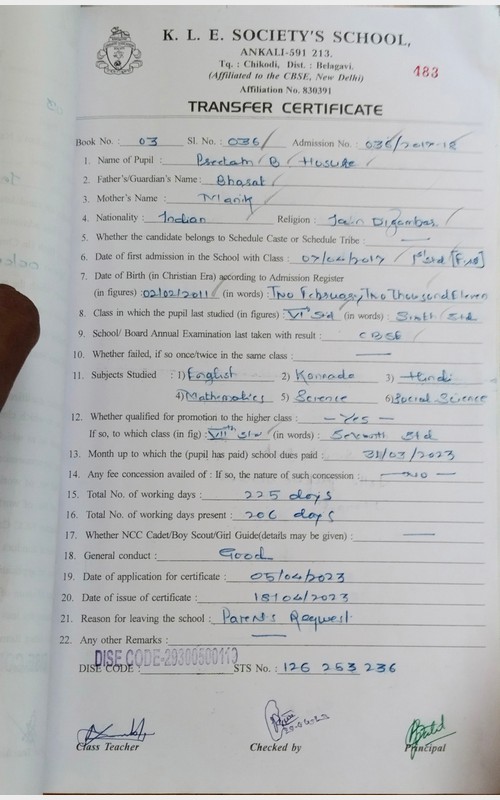 K. L. E. SOCIETY'S SCHOOL,
ANKALI-591 213.
Tq. : Chikodi, Dist. : Belagavi.
(Affiliated to the CBSE, New Delhi)
483
Affiliation No. 830391
TRANSFER CERTIFICATE
Book No. : 03 Sl. No. : 036/ Admission No. : 036/2017-18
1. Name of Pupil : Preetam B Hosure
2. Father's/Guardian's Name : Bhasat
3. Mother's Name : Manik
4. Nationality : Indian Religion : Jain Digambar
5. Whether the candidate belongs to Schedule Caste or Schedule Tribe : —
6. Date of first admission in the School with Class : 07/04/2017 / 1st std
7. Date of Birth (in Christian Era) according to Admission Register
(in figures) : 02/02/2011 (in words) : Two February, Two Thousand Eleven
8. Class in which the pupil last studied (in figures) : VIth Std (in words) : Sixth Std
9. School/ Board Annual Examination last taken with result : CBSE
10. Whether failed, if so once/twice in the same class : —
11. Subjects Studied : 1) English 2) Kannada 3) Hindi
4) Mathematics 5) Science 6) Social Science
12. Whether qualified for promotion to the higher class : — Yes —
If so, to which class (in fig) : VIIth Std (in words) : Seventh Std
13. Month up to which the (pupil has paid) school dues paid : 31/03/2023
14. Any fee concession availed of : If so, the nature of such concession : — NO —
15. Total No. of working days : 225 days
16. Total No. of working days present : 206 days
17. Whether NCC Cadet/Boy Scout/Girl Guide(details may be given) : —
18. General conduct : Good
19. Date of application for certificate : 05/04/2023
20. Date of issue of certificate : 18/04/2023
21. Reason for leaving the school : Parents Request
22. Any other Remarks : —
DISE CODE-29300500113
DISE CODE : STS No. : 126 253 236
Class Teacher Checked by Principal